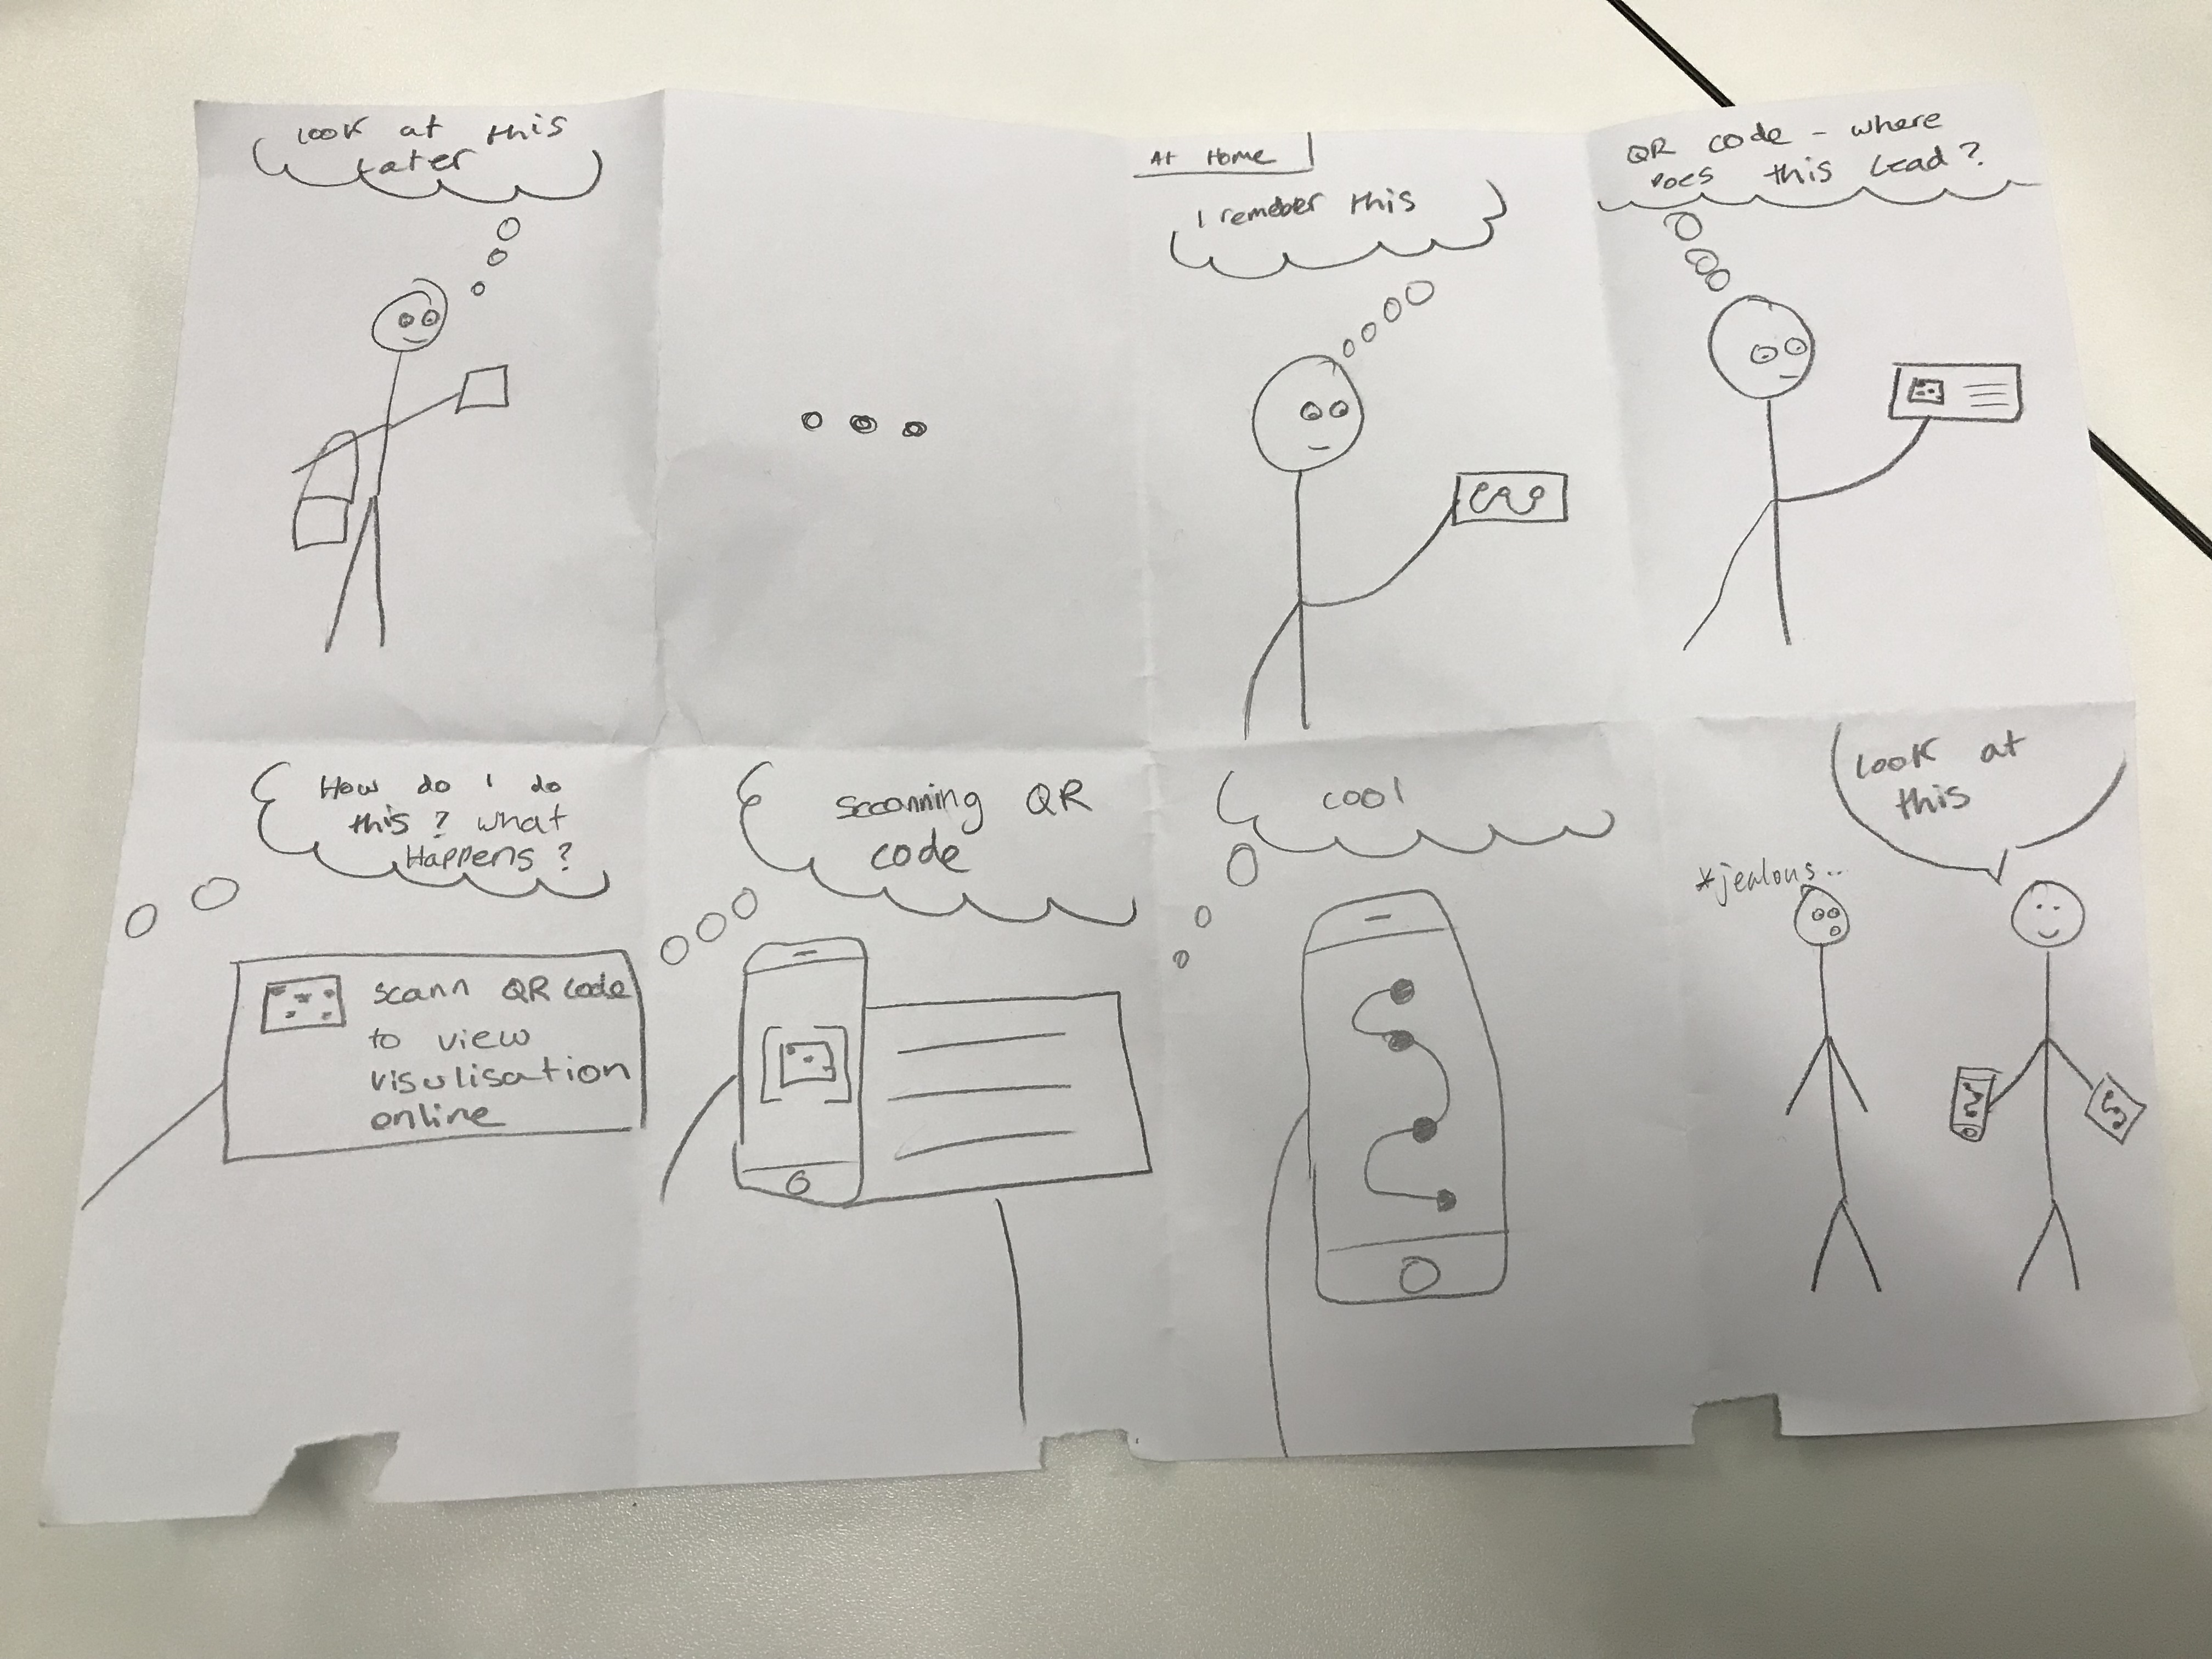 Look at this
Later
At Home
I remeber this
QR code - where
Does this Lead?
How do I do
this? what
Happens?
scann QR code
to view
visulisation
online
sccanning QR
code
cool
Look at
this
*jealous..